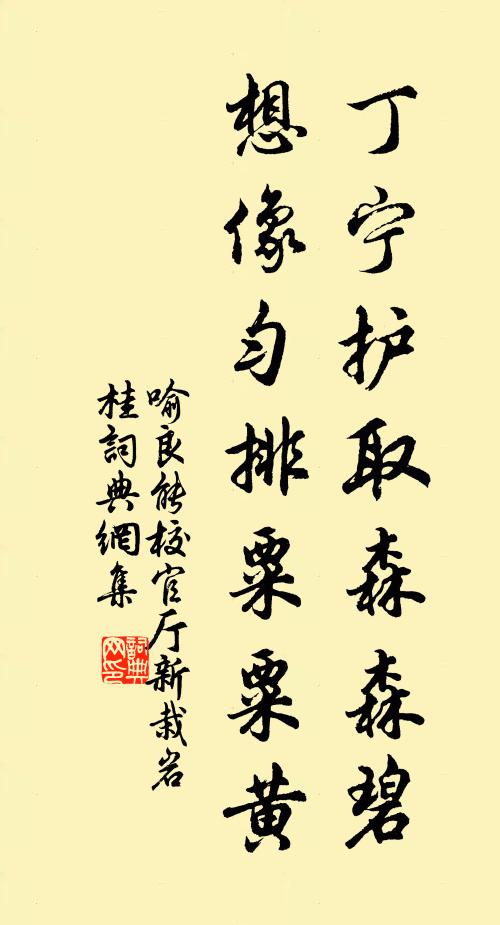 丁宁护取森森碧
想像匀排粟粟黄
喻良能校官厅新栽岩
桂詞典網集
詞典网印